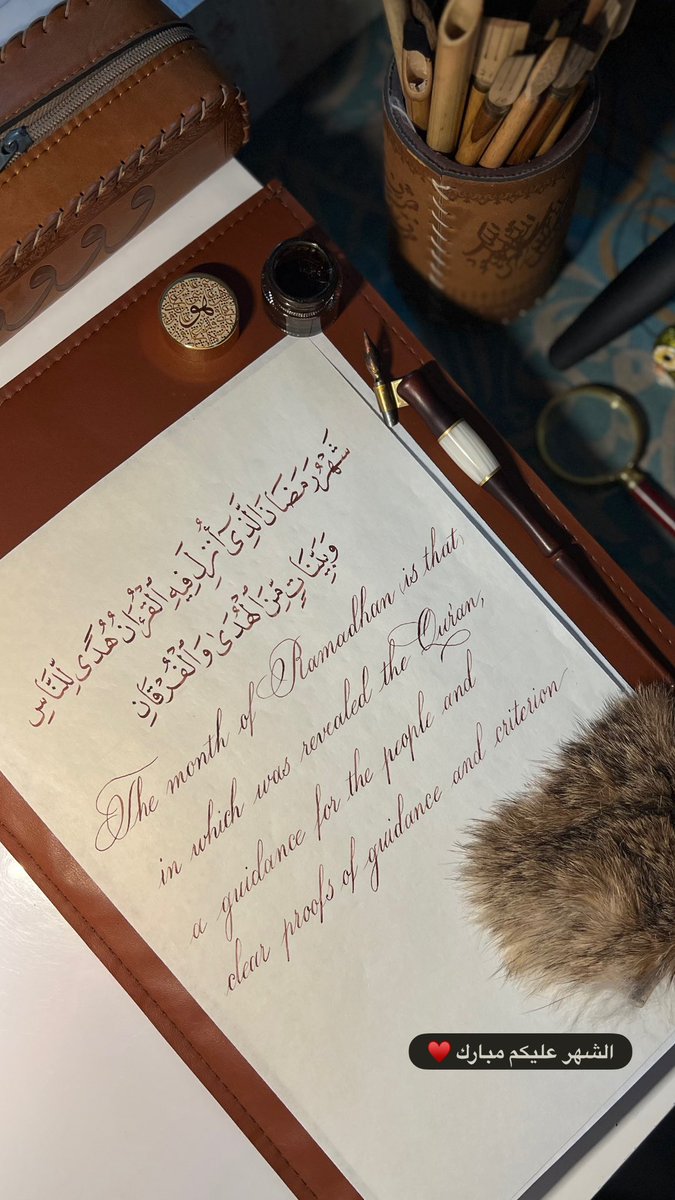 شَهْرُ رَمَضَانَ ٱلَّذِىٓ أُنزِلَ فِيهِ ٱلْقُرْءَانُ هُدًى لِّلنَّاسِ
وَبَيِّنَاتٍ مِّنَ ٱلْهُدَى وَٱلْفُرْقَانِ
The month of Ramadhan is that,
in which was revealed the Quran,
a guidance for the people and
clear proofs of guidance and criterion
الشهر عليكم مبارك ♥️